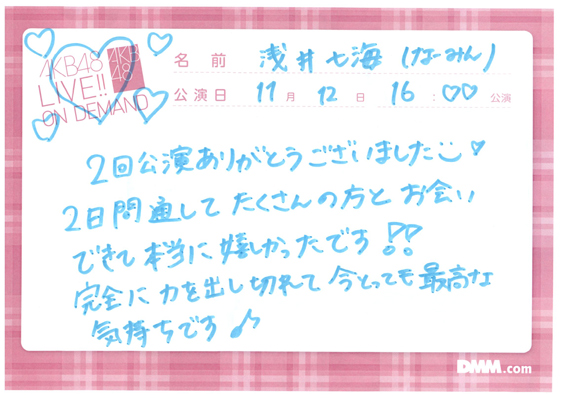 AKB48
LIVE!!
ON DEMAND
AKB
48
名前 浅井七海 (なーみん)
公演日 11月 12日 16:00 公演
2回公演ありがとうございました
2日間通してたくさんの方とお会い
できて本当に嬉しかったです!!
完全に力を出し切れて今とっても最高な
気持ちです♪
DMM.com